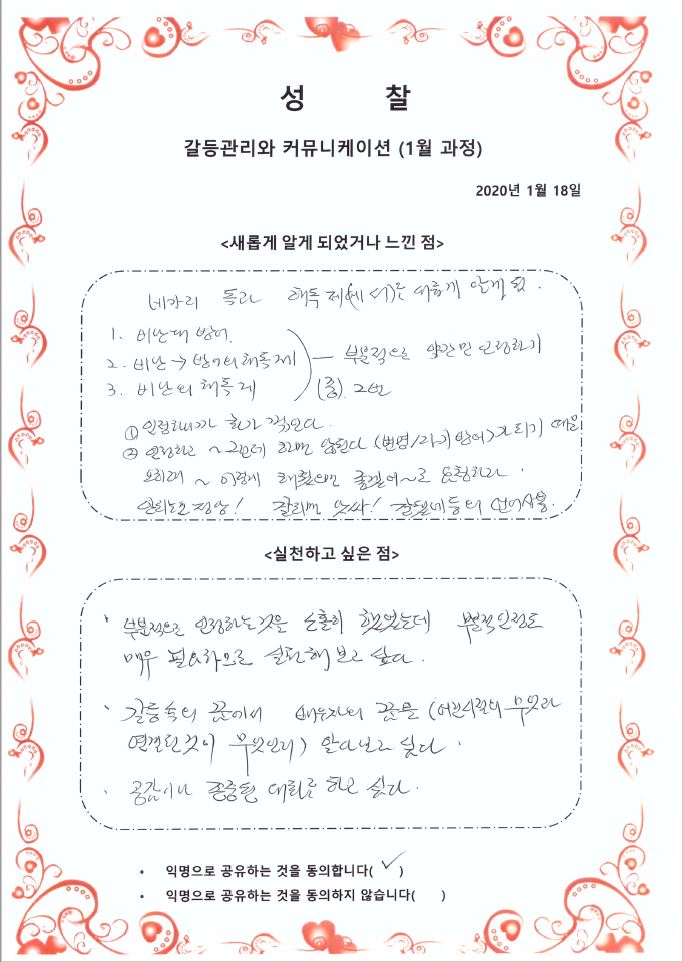 성 찰
갈등관리와 커뮤니케이션 (1월 과정)
2020년 1월 18일
<새롭게 알게 되었거나 느낀 점>
네가지 독과 해독제(세 서)는 새롭게 알게 됨.
1. 비난대 방어.
2. 비난 → 방어의 해독제
3. 비난의 해독제
부분적으로 약간만 인정하기
(중). 2번
① 인정하다가 화가 적인다.
② 인정하고 ~ 그런데 하면 안된다 (변명/자기방어>가 되기 때문
오히려 ~ 이렇게 해줬으면 좋겠어~로 요청하라.
정상! 앗싸! 등의 언어사용.
<실천하고 싶은 점>
· 부분적으로 인정하는것을 소홀히 했었는데 부분적인정도
매우 필요하므로 실천해 보고 싶다.
· 갈등속의 꿈에서 배우자의 꿈을 (어린시절의 무엇과
연결된것이 무엇인지) 알아보고 싶다.
· 공감이나 존중된 대화를 하고 싶다.
• 익명으로 공유하는 것을 동의합니다( ✓ )
• 익명으로 공유하는 것을 동의하지 않습니다( )